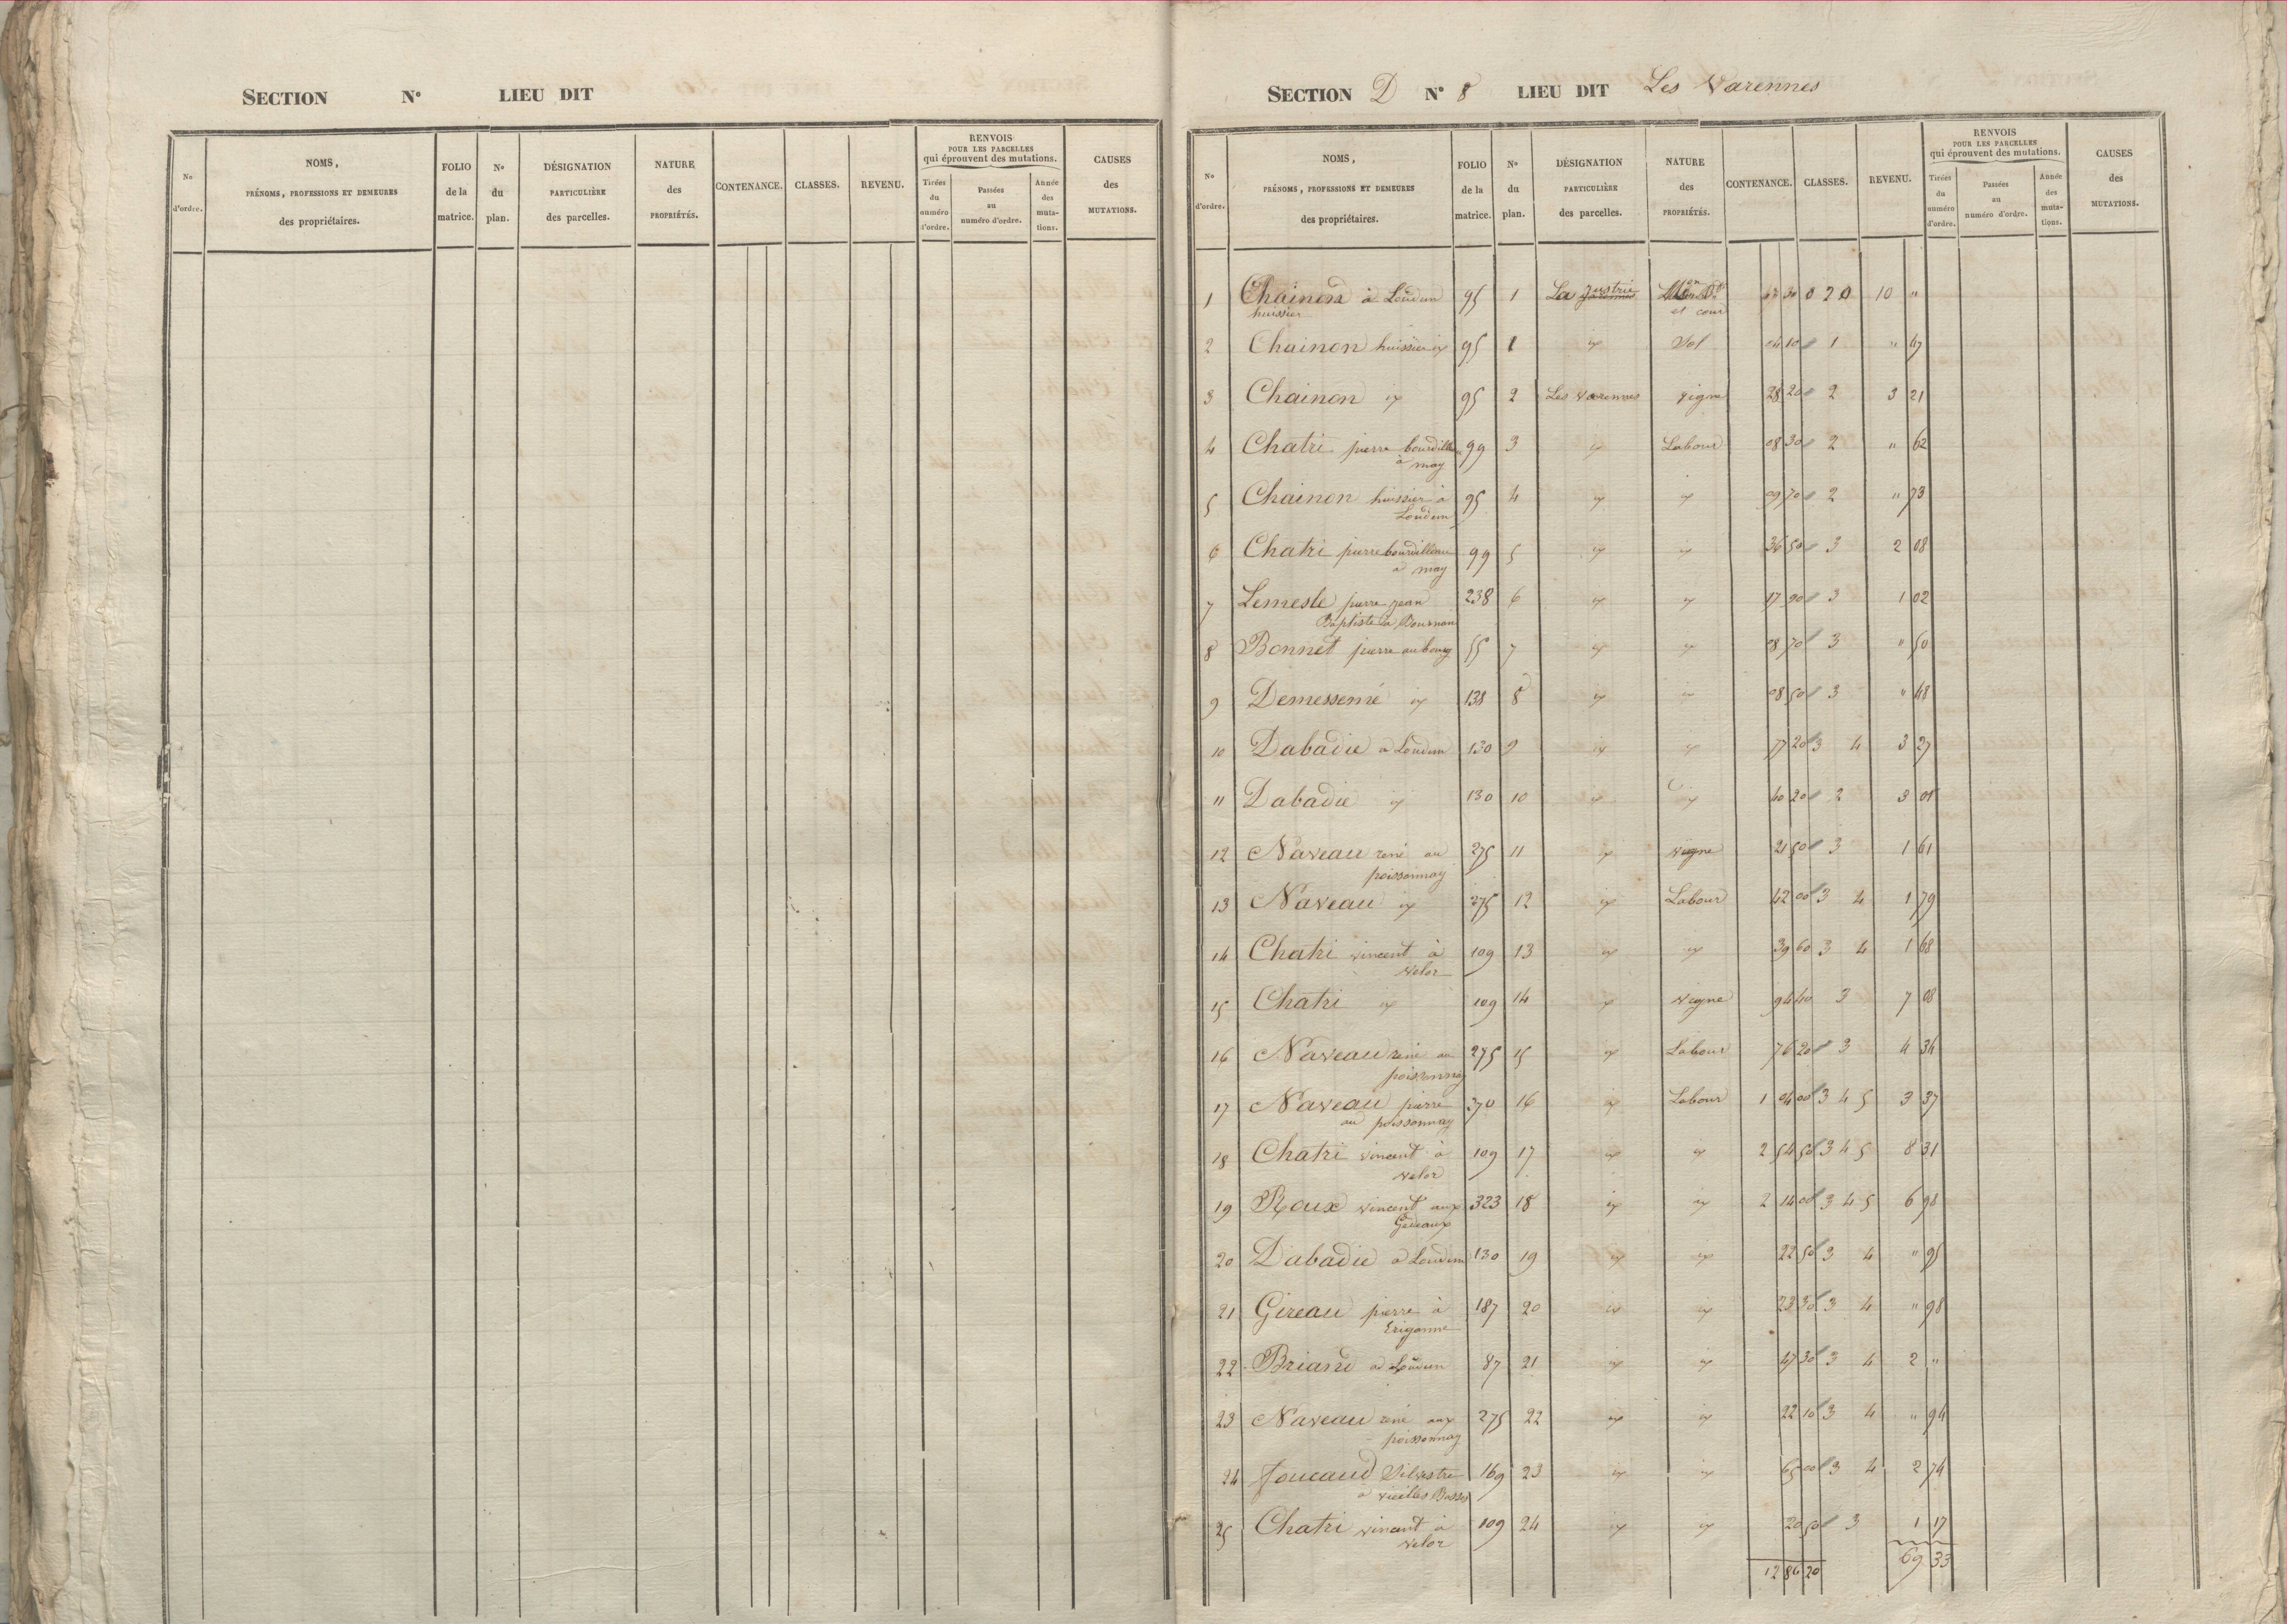 SECTION N° LIEU DIT
N° d'ordre. NOMS, PRÉNOMS, PROFESSIONS ET DEMEURES des propriétaires. FOLIO de la matrice. N° du plan. DÉSIGNATION PARTICULIÈRE des parcelles. NATURE des PROPRIÉTÉS. CONTENANCE. CLASSES. REVENU. RENVOIS POUR LES PARCELLES qui éprouvent des mutations. Tirées du numéro d'ordre. Passées au numéro d'ordre. Année des mutations. CAUSES des MUTATIONS.
SECTION D N° 8 LIEU DIT Les Varennes
N° d'ordre. NOMS, PRÉNOMS, PROFESSIONS ET DEMEURES des propriétaires. FOLIO de la matrice. N° du plan. DÉSIGNATION PARTICULIÈRE des parcelles. NATURE des PROPRIÉTÉS. CONTENANCE. CLASSES. REVENU. RENVOIS POUR LES PARCELLES qui éprouvent des mutations. Tirées du numéro d'ordre. Passées au numéro d'ordre. Année des mutations. CAUSES des MUTATIONS.
1 Chainon à Loudun 95 1 La 30 0 2 0 10 "
huissier et cour
2 Chainon huissier ix 95 1 ix Sol 04 10 1 " 47
3 Chainon ix 95 2 Les varennes vigne 28 20 2 3 21
4 Chatri pierre 99 3 ix Labour 08 30 2 " 62
à may
5 Chainon huissier à 95 4 ix ix 09 70 2 " 73
Loudun
6 Chatri pierre bourdilleau 99 5 ix ix 36 50 3 2 08
à may
7 Lemesle pierre jean 238 6 ix ix 17 90 3 1 02
Baptiste à Bournan
8 Bonnet pierre au bourg 55 7 ix ix 08 70 3 " 50
9 Demessemé ix 138 8 ix ix 08 50 3 " 48
10 Dabadie à Loudun 130 9 ix ix 77 20 3 4 3 27
11 Dabadie ix 130 10 ix ix 40 20 2 3 01
12 Naveau rené au 275 11 ix vigne 21 50 3 1 61
poissonnay
13 Naveau ix 275 12 ix Labour 42 00 3 4 1 79
14 Chatri vincent à 109 13 ix ix 39 60 3 4 1 68
velor
15 Chatri ix 109 14 ix vigne 94 40 3 7 08
16 Naveau rené au 275 15 ix Labour 76 20 3 4 34
poissonnay
17 Naveau pierre 370 16 ix Labour 1 04 00 3 4 5 3 37
au poissonnay
18 Chatri vincent à 109 17 ix ix 2 54 50 3 4 5 8 31
velor
19 Roux vincent aux 323 18 ix ix 2 14 00 3 4 5 6 98
20 Dabadie à Loudun 130 19 ix ix 22 50 3 4 " 95
21 Gireau pierre à 187 20 ix ix 23 30 3 4 " 98
22 Briand à Loudun 87 21 ix ix 47 30 3 4 2 "
23 Naveau rené aux 275 22 ix ix 22 10 3 4 " 94
poissonnay
24 foucaud Silvestre 169 23 ix ix 65 00 3 4 2 74
à vieilles Basses
25 Chatri vincent à 109 24 ix ix 20 50 3 1 17
velor
12 86 20 69 33